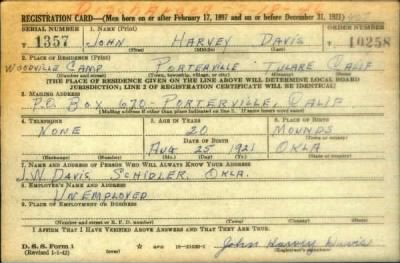 REGISTRATION CARD—(Men born on or after February 17, 1897 and on or before December 31, 1921)
SERIAL NUMBER 1. NAME (Print) ORDER NUMBER
T 1357 JOHN HARVEY DAVIS 10258
(First) (Middle) (Last)
2. PLACE OF RESIDENCE (Print)
WOODVILLE CAMP PORTERVILLE TULARE CALIF
(Number and street) (Town, township, village, or city) (County) (State)
[THE PLACE OF RESIDENCE GIVEN ON THE LINE ABOVE WILL DETERMINE LOCAL BOARD
JURISDICTION; LINE 2 OF REGISTRATION CERTIFICATE WILL BE IDENTICAL]
3. MAILING ADDRESS
P.O. BOX 670-PORTERVILLE, CALIF
[Mailing address if other than place indicated on line 2. If same insert word same]
4. TELEPHONE 5. AGE IN YEARS 6. PLACE OF BIRTH
NONE 20 MOUNDS
DATE OF BIRTH (Town or county)
AUG 25 1921 OKLA
(Exchange) (Number) (Mo.) (Day) (Yr.) (State or country)
7. NAME AND ADDRESS OF PERSON WHO WILL ALWAYS KNOW YOUR ADDRESS
J.W. DAVIS SCHIDLER, OKLA.
8. EMPLOYER'S NAME AND ADDRESS
UNEMPLOYED
9. PLACE OF EMPLOYMENT OR BUSINESS
(Number and street or R. F. D. number) (Town) (County) (State)
I AFFIRM THAT I HAVE VERIFIED ABOVE ANSWERS AND THAT THEY ARE TRUE.
D. S. S. Form 1
(Revised 1-1-42) John Harvey Davis